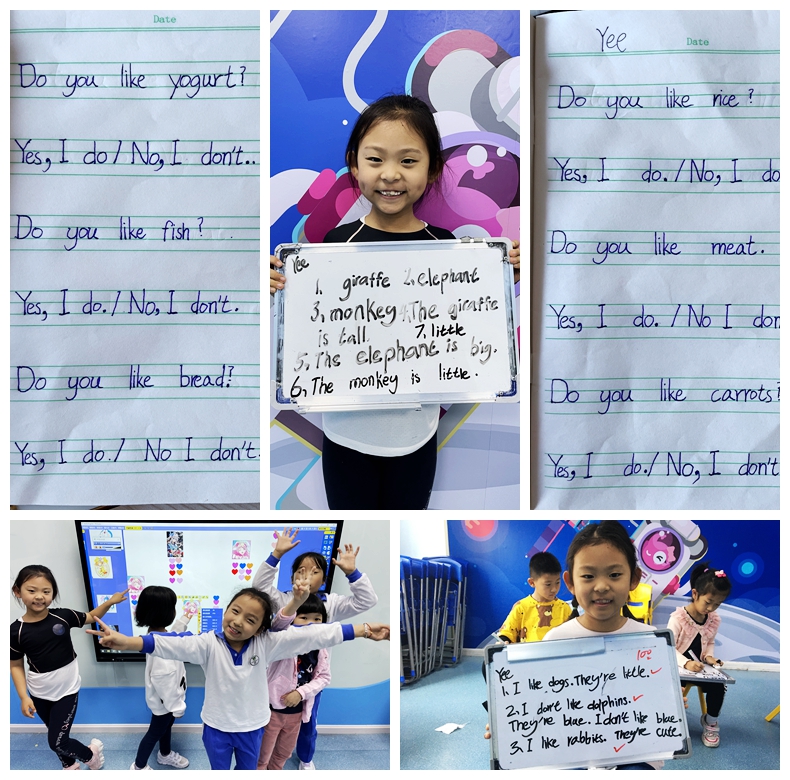 Date
Do you like yogurt?
Yes, I do / No, I don't..
Do you like fish?
Yes, I do. / No, I don't.
Do you like bread?
Yes, I do. / No I don't.
Yee
1. giraffe 2. elephant
3. monkey 4. The giraffe
is tall. 7. little
5. The elephant is big.
6. The monkey is little.
Yee
Date
Do you like rice?
Yes, I do. / No, I do
Do you like meat.
Yes, I do. / No I don
Do you like carrots?
Yes, I do. / No, I don't
100
Yee
1. I like dogs. They're little.
2. I don't like dolphins.
They're blue. I don't like blue.
3. I like rabbits. They're cute.